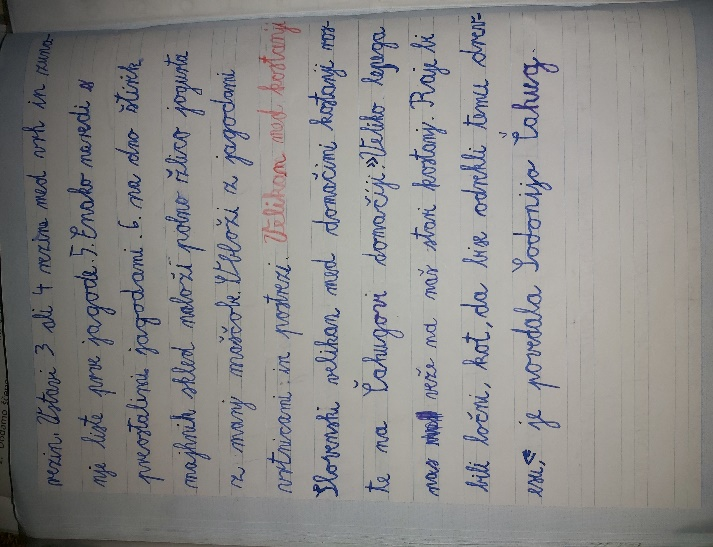 rezin. Vstavi 3 ali 4 rezine med vrh in zuna-
nje liste prve jagode. 5. Enako naredi s
preostalimi jagodami. 6. na dno štirik
majhnih skled naloži polno žlico jogurta
z manj maščob. Obloži z jagodami
vrtnicami in postrezi. Velikan med kostanji
Slovenski velikan med domačimi kostanji ras-
te na Čahugovi domačiji. »Veliko lepega
nas veže na naš stari kostanj. Raje bi
bili lačni, kot, da bi se odrekli temu drev-
esu,« je povedala Sodonija Čahug.